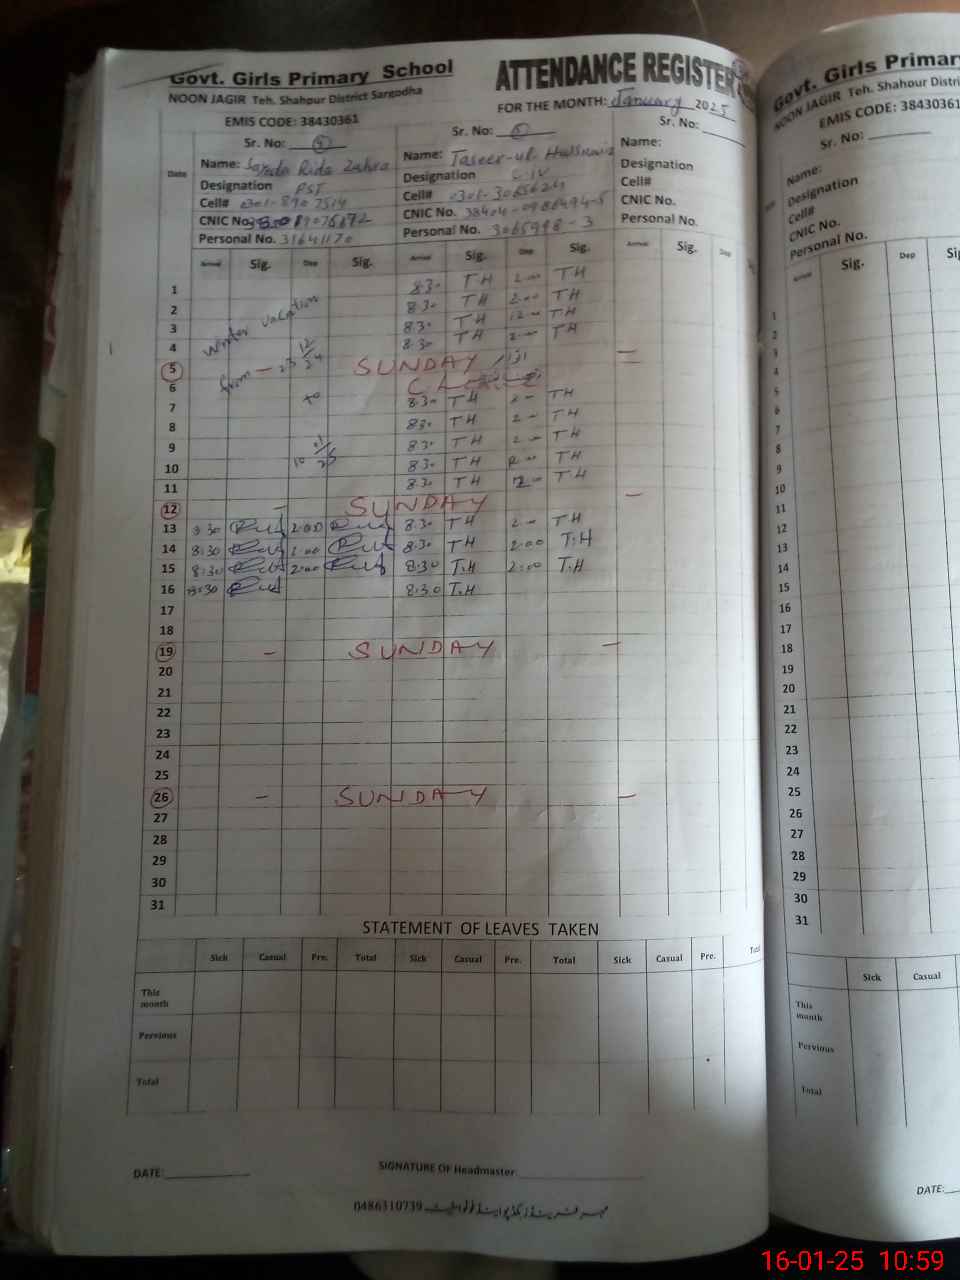 Govt. Girls Primary School
ATTENDANCE REGISTER
NOON JAGIR Teh. Shahpur District Sargodha
FOR THE MONTH: January 2025
EMIS CODE: 38430361
Sr. No: 5
Sr. No:
Date
Name: Syeda Rida Zahra
Name: Taseer-ul-
Name:
Designation PST
Designation C-IV
Designation
Cell# 0301-8907514
Cell# 0301-3065624
Cell#
CNIC No.
CNIC No. 38404-0986494-5
CNIC No.
Personal No. 31641170
Personal No. 3065998-3
Personal No.
Arrival Sig. Dep Sig. Arrival Sig. Dep Sig. Arrival Sig. Dep
1 8.30 TH 2-00 TH
2 8.30 TH 2-00 TH
3 Winter vacation 8.30 TH 12-00 TH
4 8.30 TH 2-00 TH
5 from - 23 12/24 SUNDAY
6
7 to 8.30 TH 2-00 TH
8 8.30 TH 2-00 TH
9 8.30 TH 2-00 TH
10 10 01/25 8.30 TH 2-00 TH
11 8.30 TH 2-00 TH
12 - SUNDAY -
13 8:30 2:00 8.30 TH 2-00 TH
14 8:30 2:00 8.30 TH 2:00 T.H
15 8:30 2:00 8:30 T.H 2:00 T.H
16 8:30 8:30 T.H
17
18
19 - SUNDAY -
20
21
22
23
24
25
26 - SUNDAY -
27
28
29
30
31
STATEMENT OF LEAVES TAKEN
Sick Casual Pre. Total Sick Casual Pre. Total Sick Casual Pre. Total
This month
Pervious
Total
DATE:
SIGNATURE OF Headmaster
0486310739
Govt. Girls Primary
NOON JAGIR Teh. Shahpur Distri
EMIS CODE: 38430361
Sr. No:
Name:
Designation
Cell#
CNIC No.
Personal No.
Arrival Sig. Dep
1
2
3
4
5
6
7
8
9
10
11
12
13
14
15
16
17
18
19
20
21
22
23
24
25
26
27
28
29
30
31
Sick Casual
This month
Pervious
Total
DATE:
16-01-25 10:59